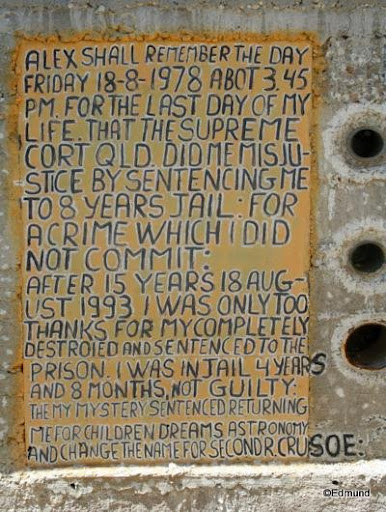 ALEX SHALL REMEMBER THE DAY
FRIDAY 18-8-1978 ABOT 3.45
PM. FOR THE LAST DAY OF MY
LIFE. THAT THE SUPREME
CORT QLD. DID ME MISJU-
STICE BY SENTENCING ME
TO 8 YEARS JAIL: FOR
A CRIME WHICH I DID
NOT COMMIT:
AFTER 15 YEARS 18 AUG-
UST 1993 I WAS ONLY TOO
THANKS FOR MY COMPLETELY
DESTROIED AND SENTENCED TO THE
PRISON. I WAS IN JAIL 4 YEARS
AND 8 MONTHS, NOT GUILTY:
THE MY MYSTERY SENTENCED RETURNING
ME FOR CHILDREN DREAMS ASTRONOMY
AND CHANGE THE NAME FOR SECOND R. CRUSOE:
©Edmund